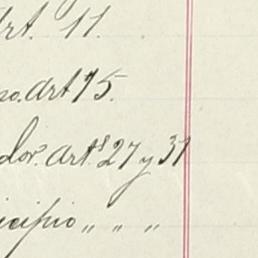 art. 11.
no. art 15.
dor. arts 27 y 31
icipio " " "